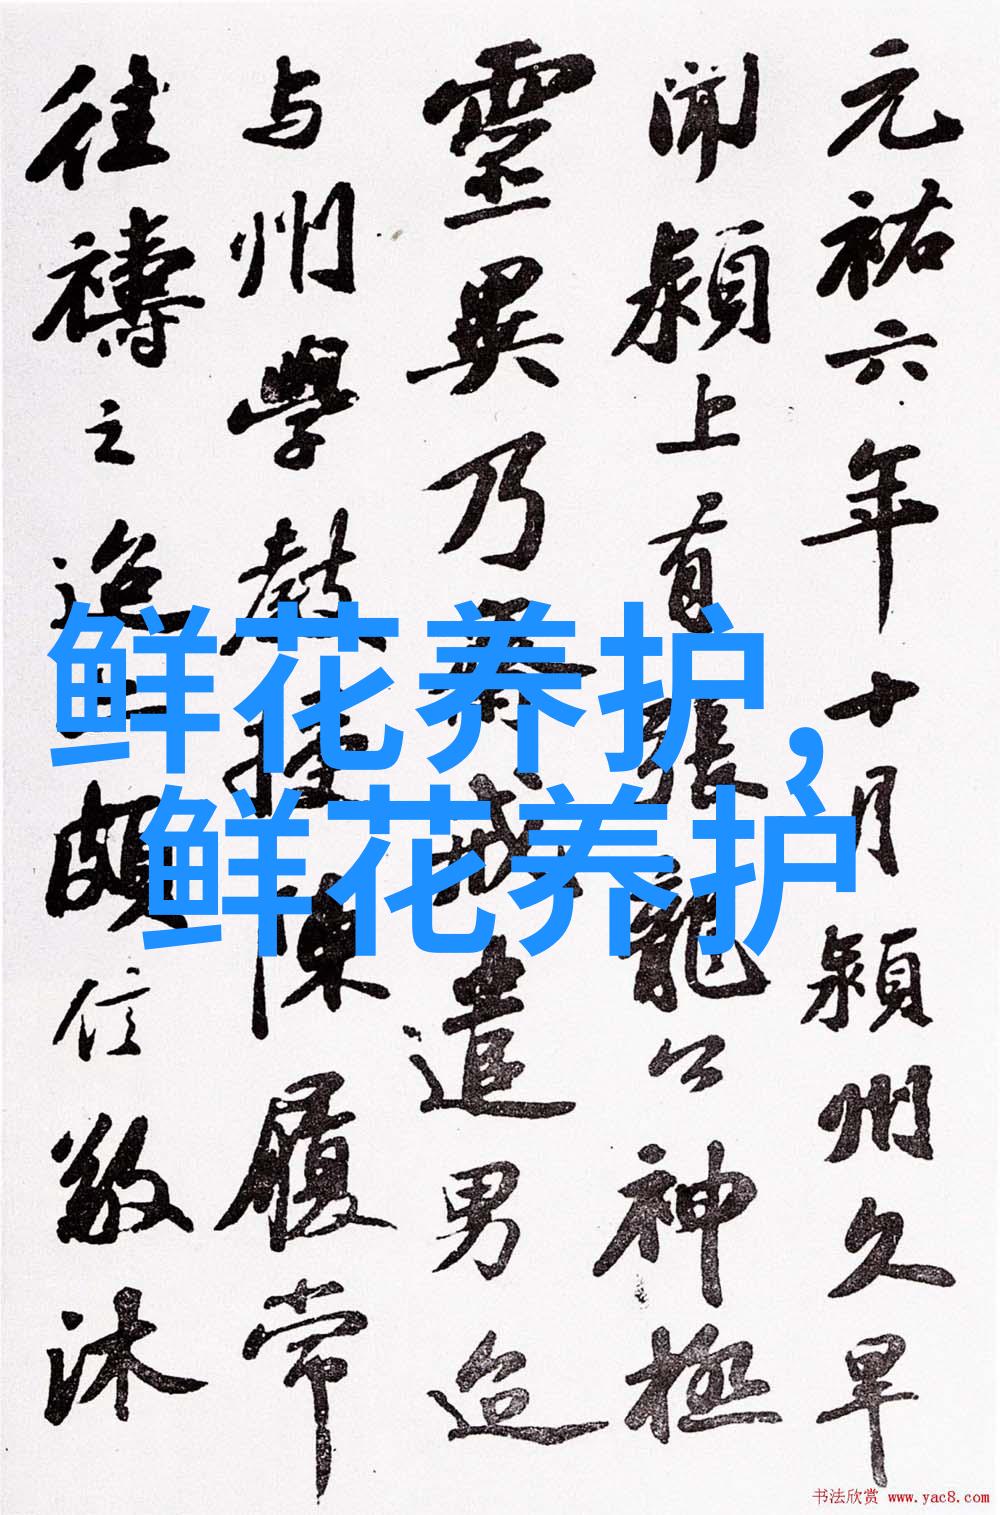 元祐六年十月颍州久旱
闻颍上有张龍公神極
靈異乃齋戒遣男迨
与州學教授陳履常
往禱之迨亦頗信敬沐
鲜花养护,
鲜花养护
书法欣赏 www.yac8.com